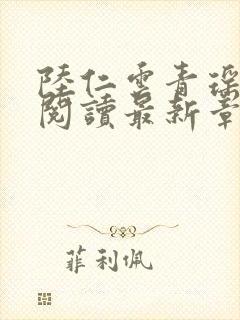 陸仁雲青瑶
閱讀最新章
菲利佩